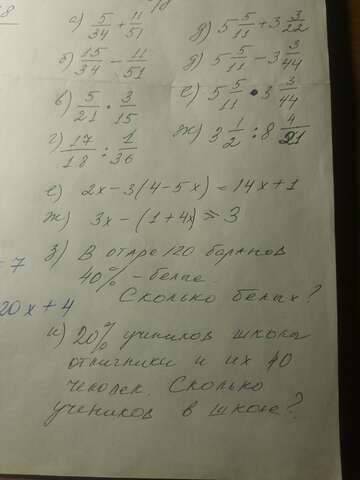 18
а) 5/34 + 11/51
д) 5 5/11 + 3 3/22
б) 15/34 - 11/51
д) 5 5/11 - 3 3/44
в) 5/21 · 3/15
е) 5 5/11 · 3 3/44
г) 17/18 : 1/36
ж) 3 1/2 : 8 4/21
е) 2х - 3(4 - 5х) = 14х + 1
ж) 3х - (1 + 4х) = 3
з) В отаре 120 баранов
= 7
40% - белые.
Сколько белых?
20х + 4
и) 20% учеников школа
отличники и их 40
человек. Сколько
учеников в школе?